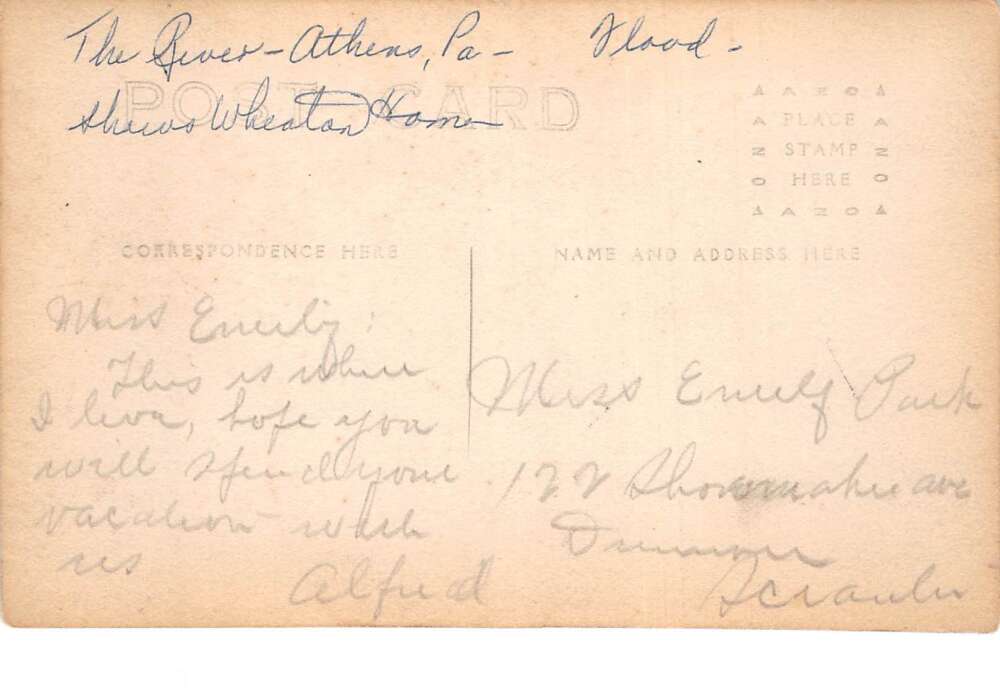 The River - Athens, Pa - Flood -
POST CARD
shows Wheaton Home
AZO
PLACE
STAMP
HERE
AZO
CORRESPONDENCE HERE
NAME AND ADDRESS HERE
Miss Emily:
This is where
I live, hope you
will spend your
vacation with
us
Alfred
Miss Emily Park
122 Shoemaker ave
Dunmore
Scranton